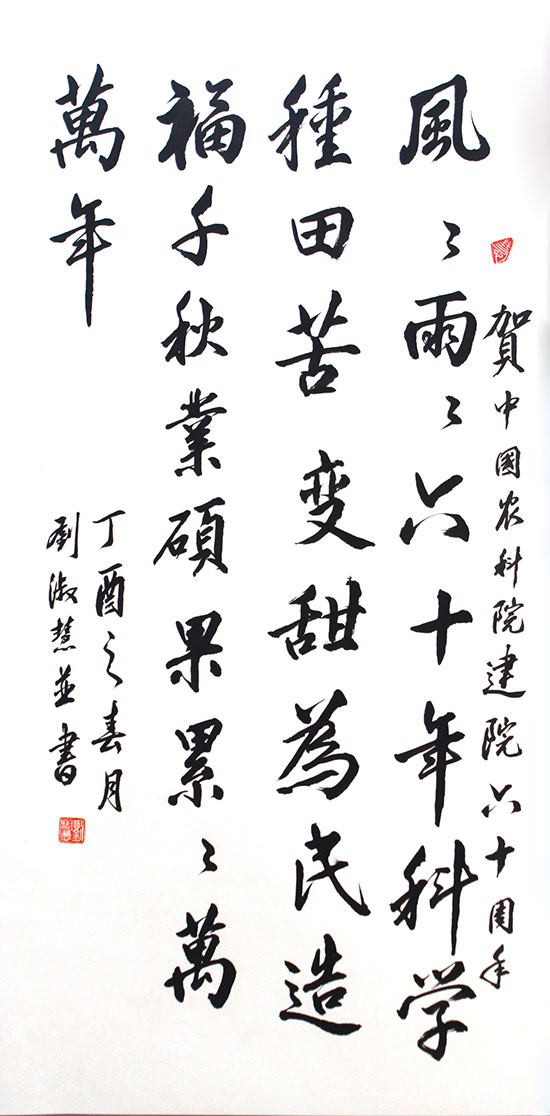 賀中國农科院建院六十周年
風〻雨〻六十年科学
種田苦变甜為民造
福千秋業碩果累〻萬
萬年
丁酉之春月
劉淑慧並書